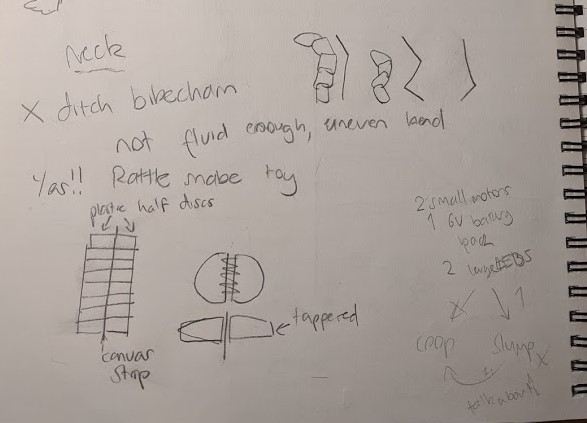 Neck
X ditch bikecham
not fluid enough, uneven bend
Yas!! Rattle snabe toy
plastic half discs
canvas
strap
tappered
2 small motors
1 6V battery
pack
2 large LEDS
Slump
talk about